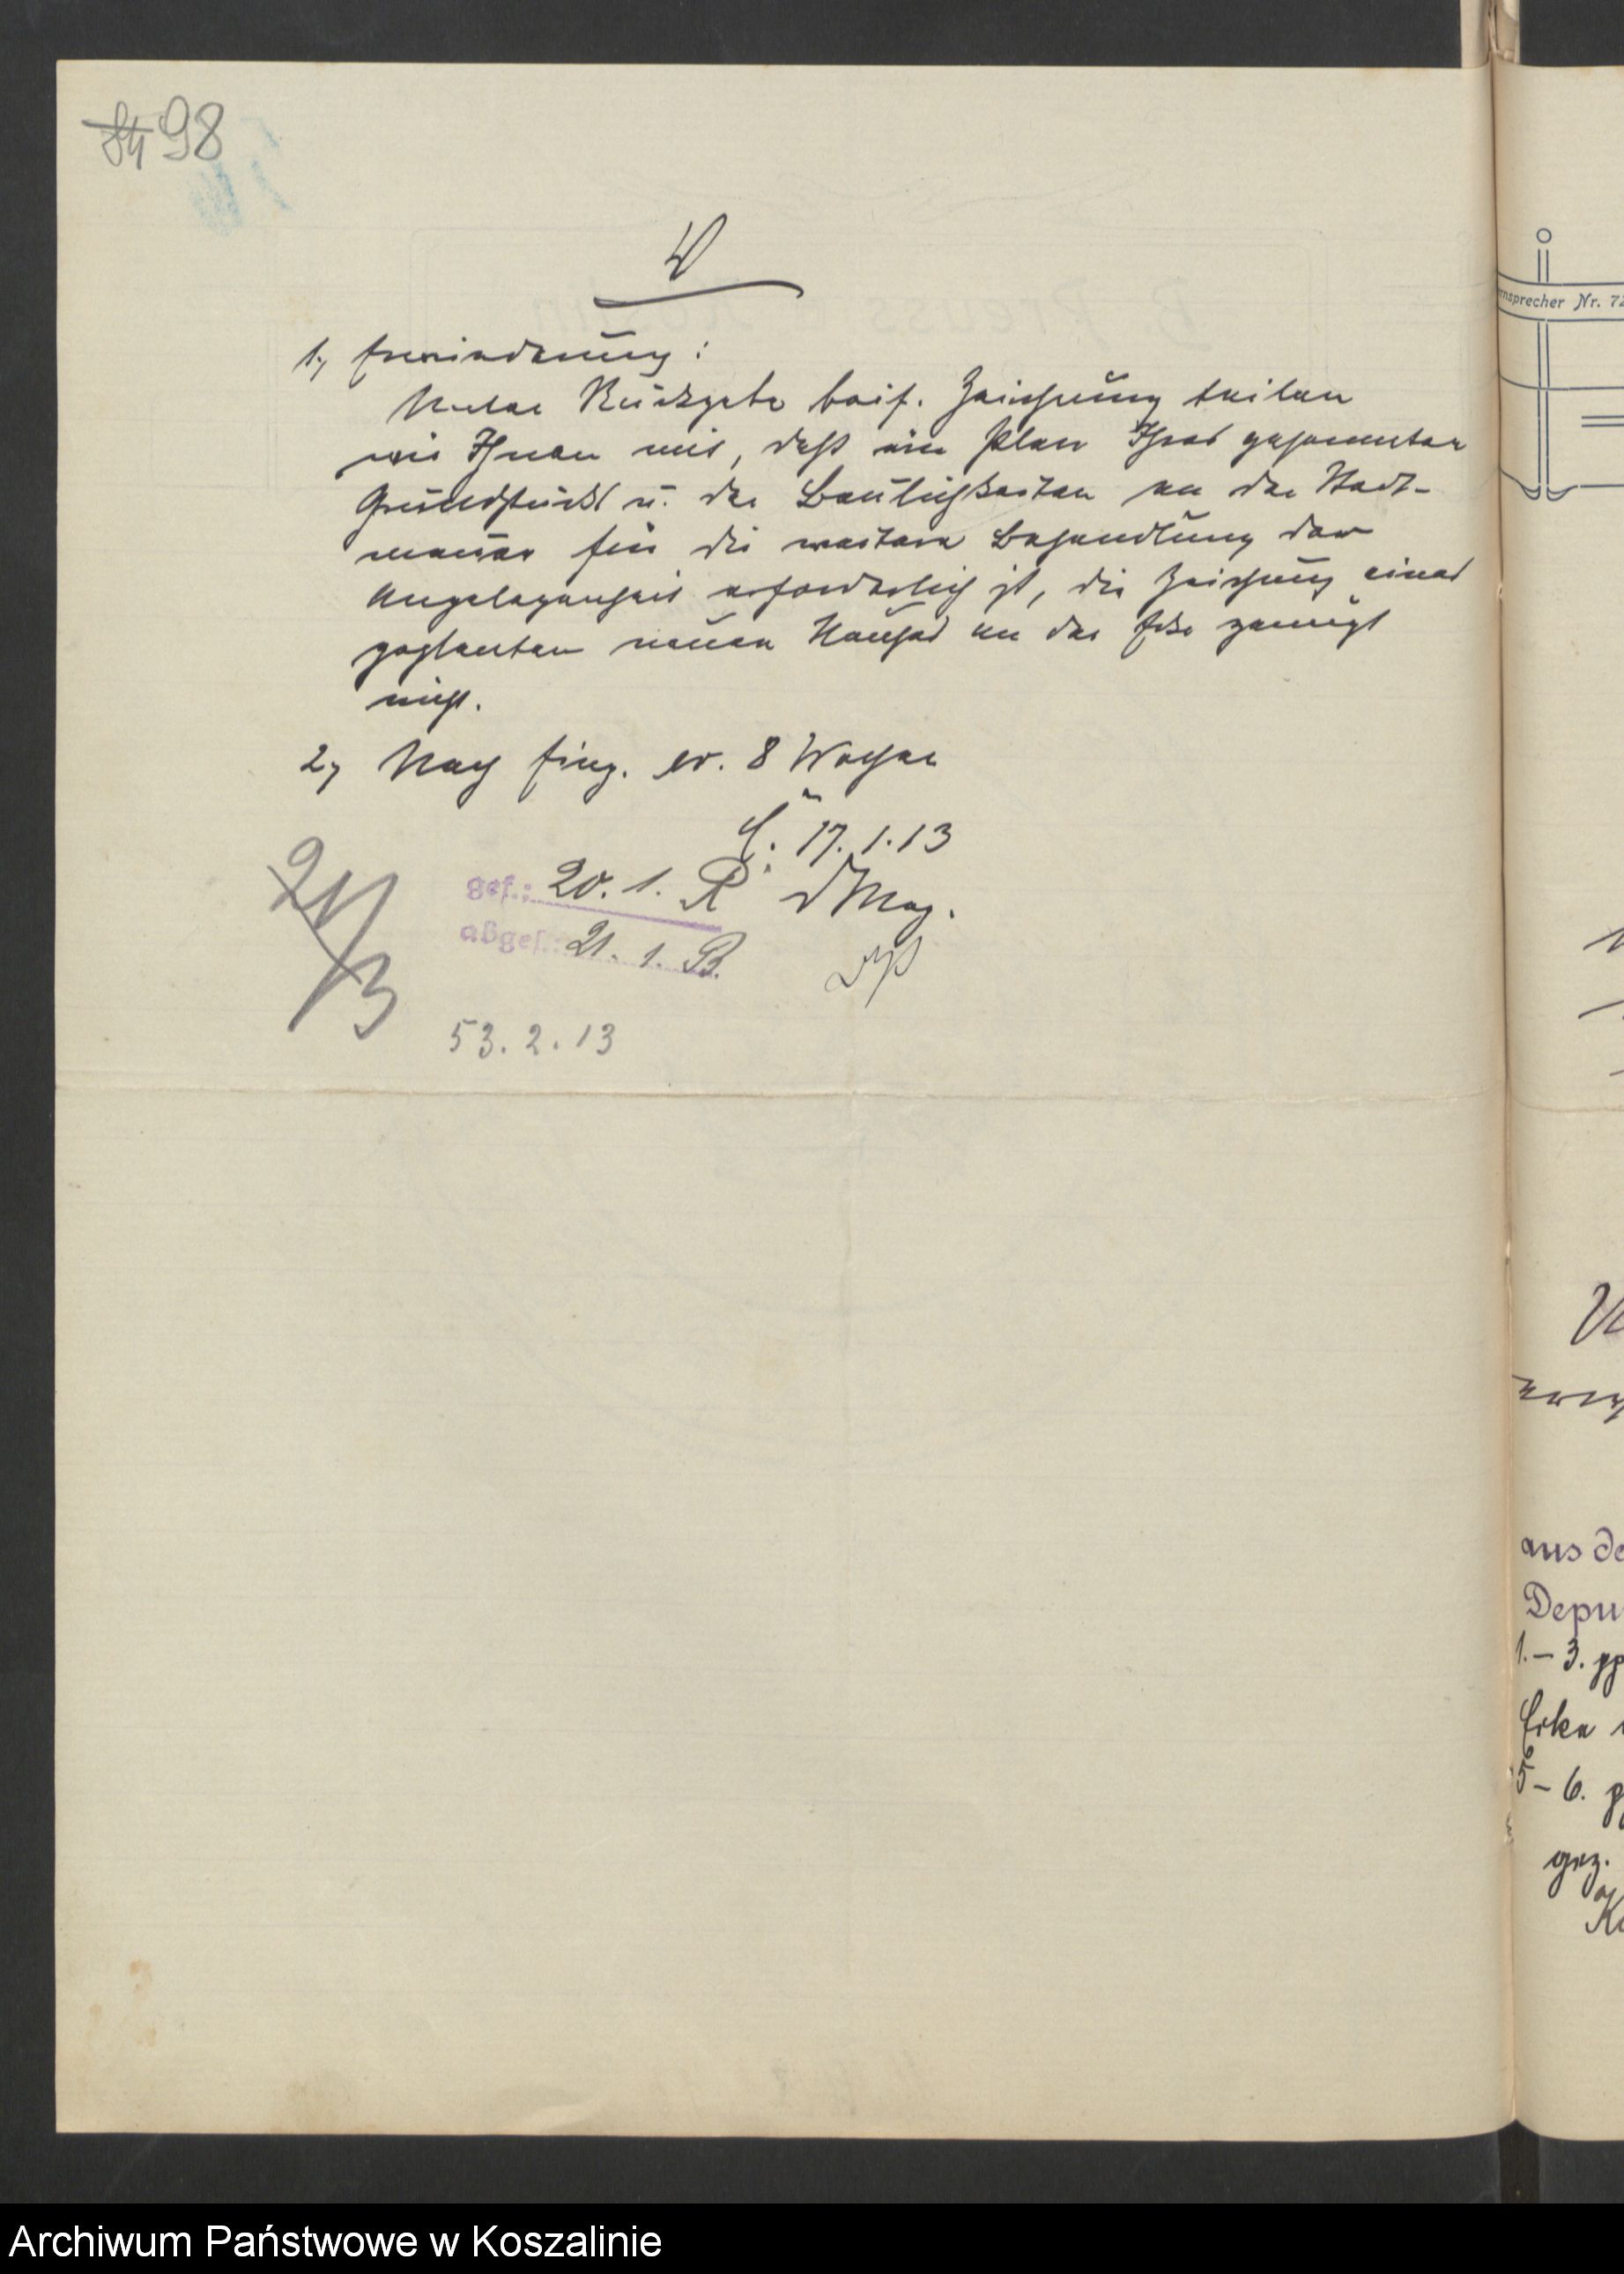 84 98
V
1., Erwiderung:
Unter Rückgabe beif. Zeichnung teilen
wir Ihnen mit, daß ein Plan Ihres gesammten
Grundstücks u. der Baulichkeiten an der Stadt-
mauer für die weitere Behandlung der
Angelegenheit erforderlich ist, die Zeichnung eines
geplanten neuen Hauses an der Ecke genügt
nicht.
2, Nach Eing. ev. 8 Wochen
C: 17.1.13
gef.: 20. 1. R d Mag.
abges.: 21. 1. B.
21/3
53.2.13
ernsprecher Nr. 72
aus de
Depu
1.- 3. pp
5- 6. p
gez.
Archiwum Państwowe w Koszalinie